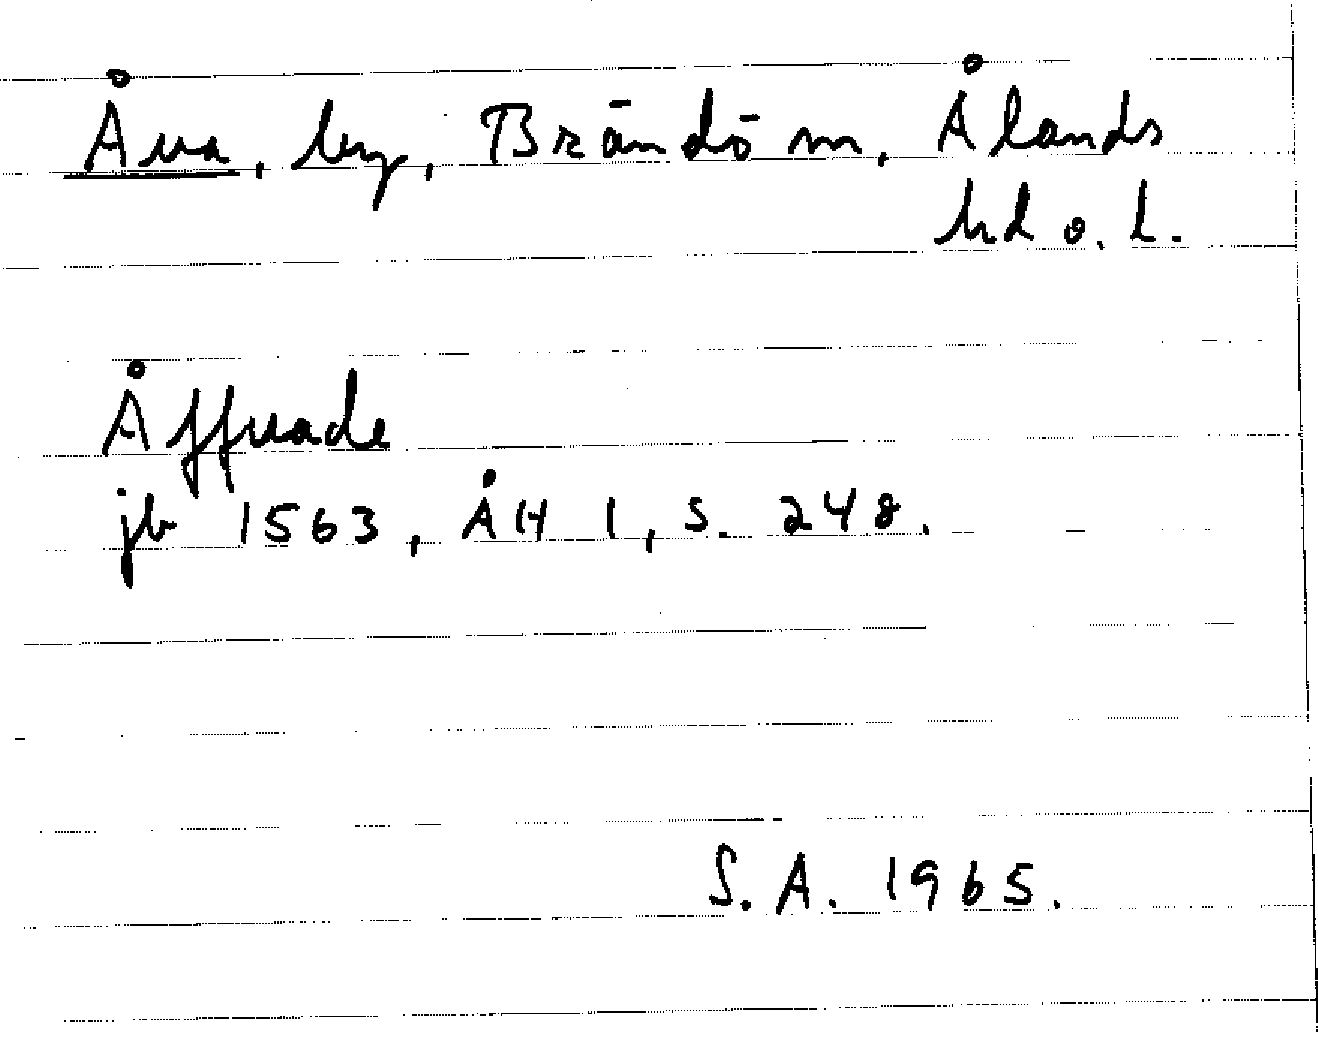 Åva, by, Brändö m, Ålands
hd o. l.
Åffuade
jb 1563, ÅH 1, s. 248.
S.A. 1965.